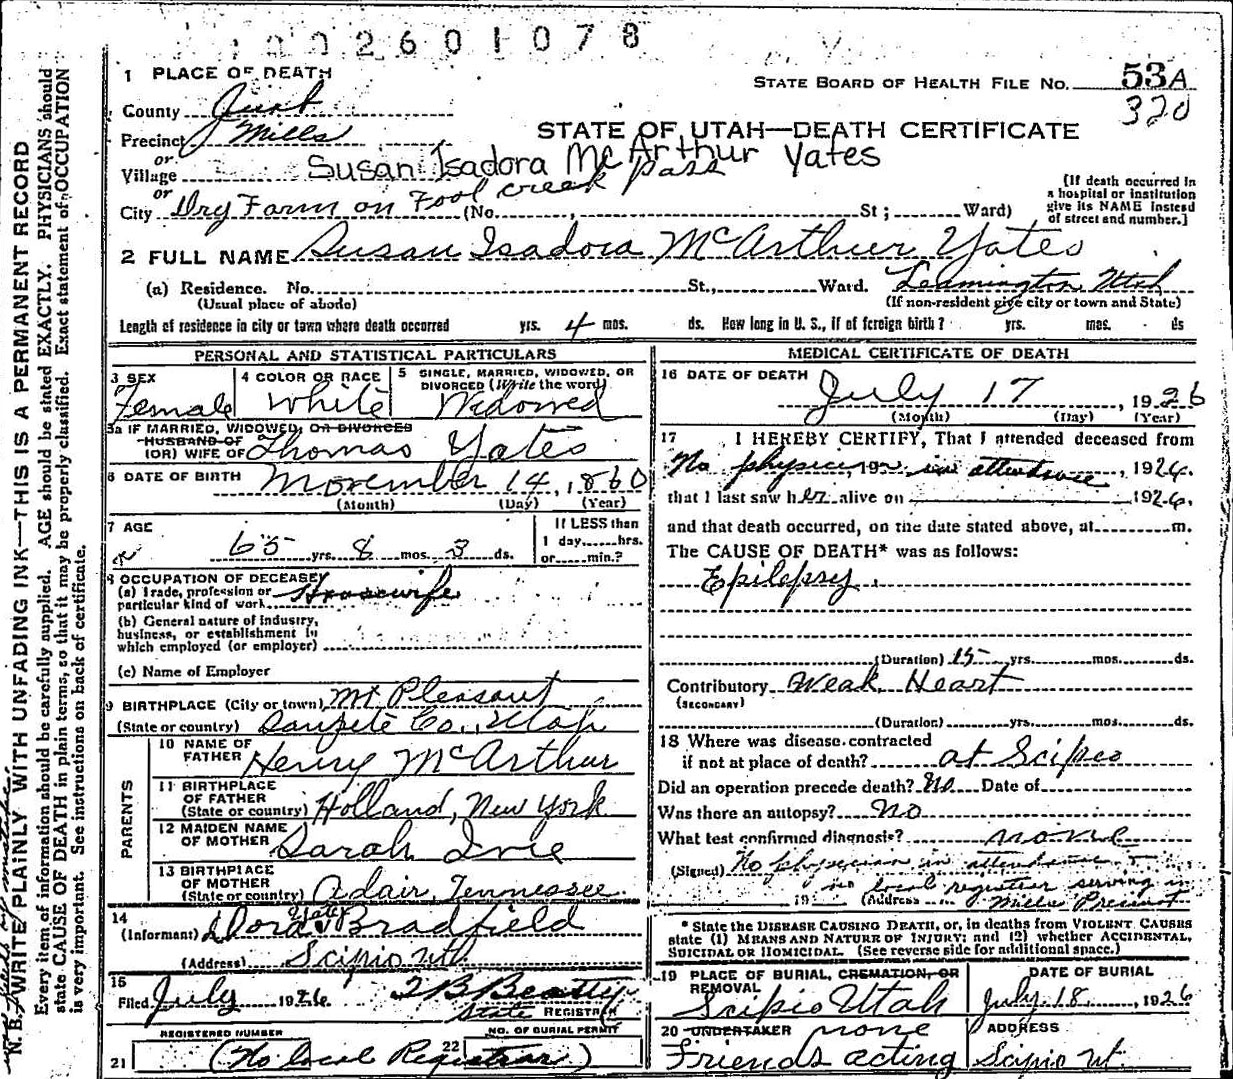 1002601078
1 PLACE OF DEATH
STATE BOARD OF HEALTH FILE NO. 53A
320
County Juab
Precinct Mills
STATE OF UTAH—DEATH CERTIFICATE
or
Village Susan Isadora McArthur Yates
or
City Dry Farm on Fool creek pass (No. , St; Ward)
(If death occurred in a hospital or institution give its NAME instead of street and number.]
2 FULL NAME Susan Isadora McArthur Yates
(a) Residence. No. St., Ward. Leamington, Utah
(Usual place of abode) (If non-resident give city or town and State)
Length of residence in city or town where death occurred yrs. 4 mos. ds. How long in U. S., if of foreign birth? yrs. mos. ds
PERSONAL AND STATISTICAL PARTICULARS
3 SEX
Female
4 COLOR OR RACE
White
5 SINGLE, MARRIED, WIDOWED, OR DIVORCED (Write the word)
Widowed
3a IF MARRIED, WIDOWED, OR DIVORCED
HUSBAND OF
(OR) WIFE OF Thomas Yates
6 DATE OF BIRTH November 14, 1860
(Month) (Day) (Year)
7 AGE
65 yrs. 8 mos. 3 ds.
If LESS than
1 day......hrs.
or......min.?
8 OCCUPATION OF DECEASED
(a) Trade, profession or
particular kind of work Housewife
(b) General nature of industry,
business, or establishment in
which employed (or employer)
(c) Name of Employer
9 BIRTHPLACE (City or town) Mt Pleasant
(State or country) Sanpete Co., Utah
PARENTS
10 NAME OF
FATHER Henry McArthur
11 BIRTHPLACE
OF FATHER
(State or country) Holland, New York
12 MAIDEN NAME
OF MOTHER Sarah Ivie
13 BIRTHPLACE
OF MOTHER
(State or country) Adair, Tennessee.
14
(Informant) Dora Yates Bradfield
(Address) Scipio Ut.
15
Filed July 1926 T B Beatty
State REGISTRAR
REGISTERED NUMBER NO. OF BURIAL PERMIT
21 (No local Registrar) 22
MEDICAL CERTIFICATE OF DEATH
16 DATE OF DEATH July 17, 1926
(Month) (Day) (Year)
17 I HEREBY CERTIFY, That I attended deceased from
No physician in attendance, 1926.
that I last saw her alive on 1926.
and that death occurred, on the date stated above, at m.
The CAUSE OF DEATH* was as follows:
Epilepsy.
(Duration) 15 yrs. mos. ds.
Contributory Weak Heart
(SECONDARY)
(Duration) yrs. mos. ds.
18 Where was disease contracted
if not at place of death? at Scipio
Did an operation precede death? No Date of
Was there an autopsy? No
What test confirmed diagnosis? none
(Signed) No physician in attendance
no local registrar serving in
19 (Address Mills Precinct
* State the DISEASE CAUSING DEATH, or, in deaths from VIOLENT CAUSES
state (1) MEANS AND NATURE OF INJURY; and (2) whether ACCIDENTAL,
SUICIDAL OR HOMICIDAL. (See reverse side for additional space.)
19 PLACE OF BURIAL, CREMATION, OR
REMOVAL
Scipio Utah
DATE OF BURIAL
July 18, 1926
20 UNDERTAKER none
Friends acting
ADDRESS
Scipio Ut.
N. B. WRITE PLAINLY WITH UNFADING INK—THIS IS A PERMANENT RECORD
Every item of information should be carefully supplied. AGE should be stated EXACTLY. PHYSICIANS should
state CAUSE OF DEATH in plain terms, so that it may be properly classified. Exact statement of OCCUPATION
is very important. See instructions on back of certificate.